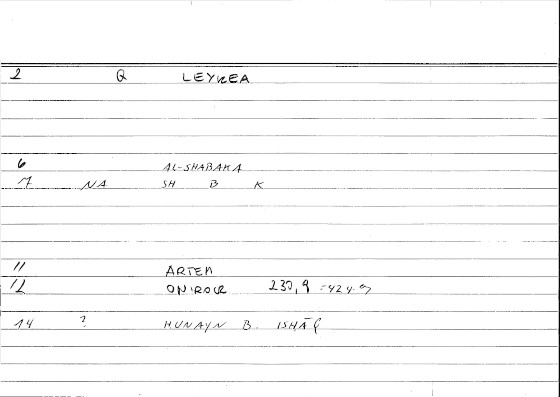 2 Q LEYKEA
6 AL-SHABAKA
7 NA SH B K
11 ARTEM
12 ONIROCR 230,9 =424-9
14 ? HUNAYN B. ISHĀQ